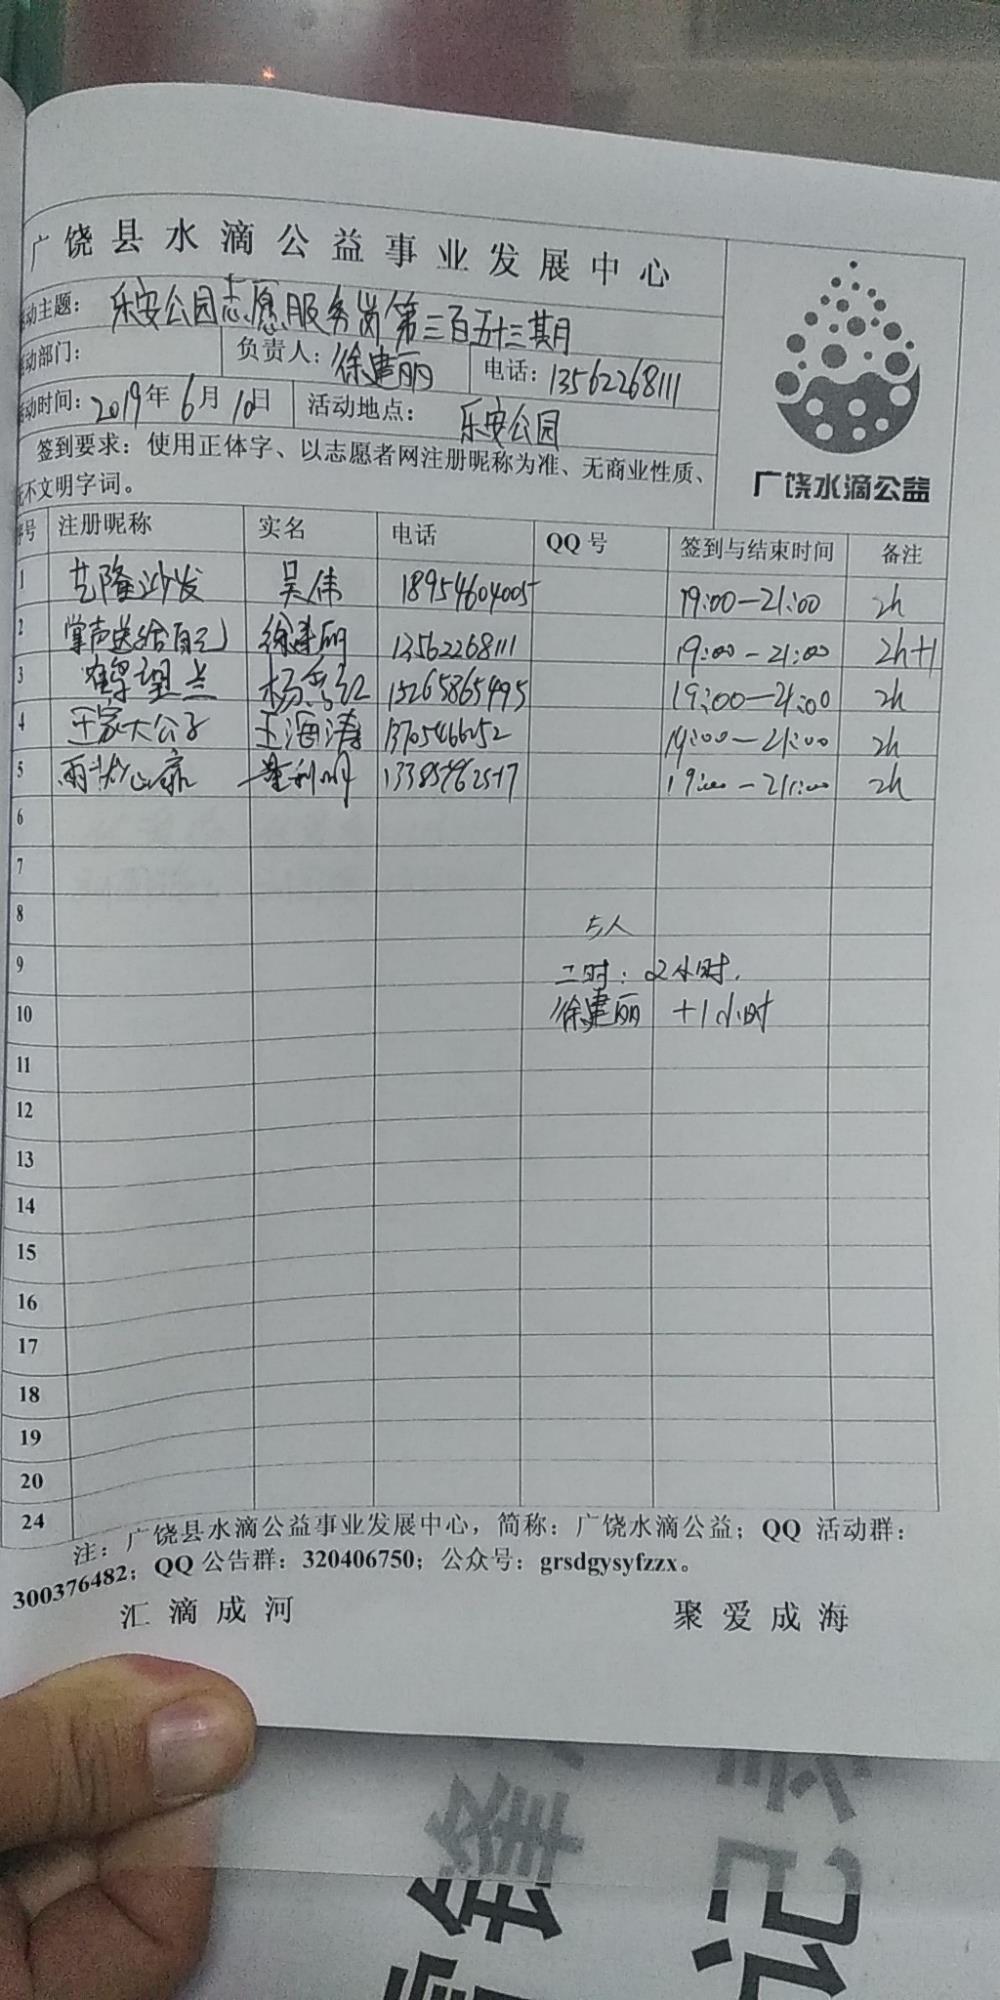 广饶县水滴公益事业发展中心
动主题: 乐安公园志愿服务岗第三百五十三期
动部门: 负责人: 徐建丽 电话: 13562268111
动时间: 2019年6月10日 活动地点: 乐安公园
签到要求: 使用正体字、以志愿者网注册昵称为准、无商业性质、
不文明字词。
广饶水滴公益
序号 注册昵称 实名 电话 QQ号 签到与结束时间 备注
1 艺隆沙发 吴伟 18954604005 19:00-21:00 2h
2 掌声送给自己 徐建丽 13562268111 19:00-21:00 2h+1
3 15265865495 19:00-21:00 2h
4 王家大公子 王海涛 13705466252 19:00-21:00 2h
5 19:00-21:00 2h
6
7
8 5人
9 工时: 2小时.
10 徐建丽 +1小时
11
12
13
14
15
16
17
18
19
20
24
注: 广饶县水滴公益事业发展中心, 简称: 广饶水滴公益; QQ 活动群:
300376482; QQ 公告群: 320406750; 公众号: grsdgysyfzzx。
汇滴成河 聚爱成海